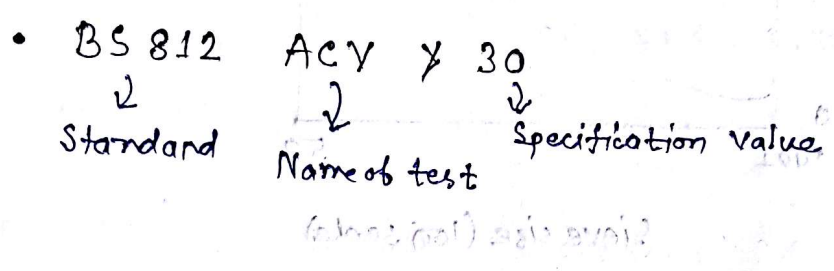 • BS 812 ACV ≯ 30
Standard
Name of test
Specification value